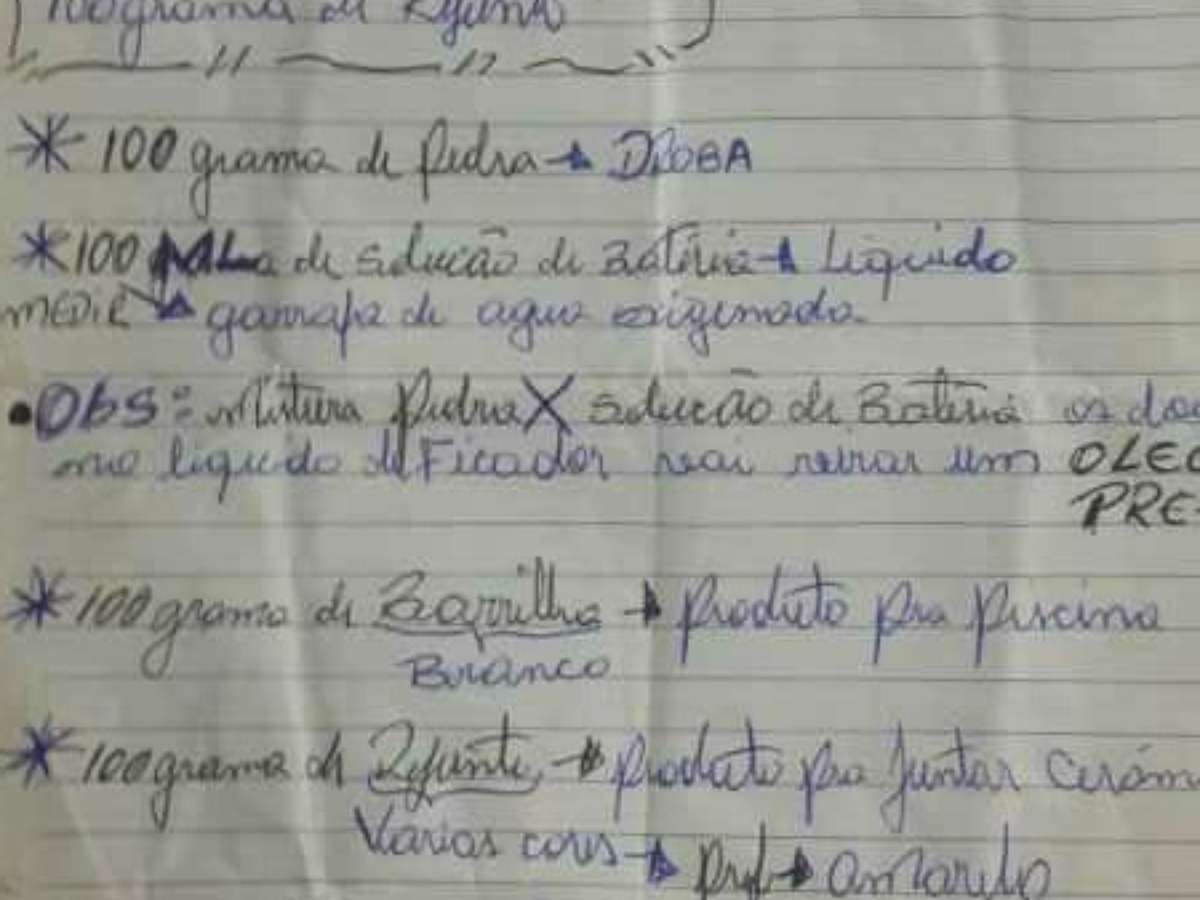 100 grama de Rejunte
* 100 grama de pedra → DROGA
* 100 ML de solucão de Batéria → Liquido
MEDIR → garrafa de agua oxigenada
• Obs: mistura pedra X solucão de Bateria os dois
no liquidodificador vai virar um OLEO
PRE
* 100 grama de Barrilha → produto pra piscina
Branco
* 100 grama de Rejunte → produto pra juntar cerâm
Várias cores → → amarelo